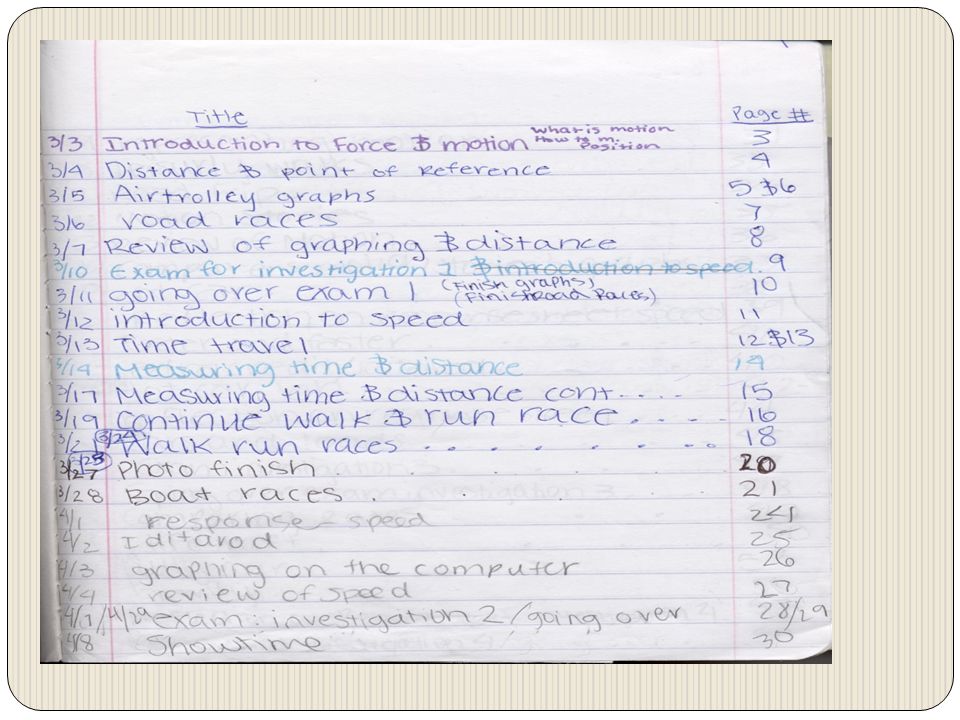 Title Page #
3/3 Introduction to Force & motion What is motion How to m. Position 3
3/4 Distance & point of Reference 4
3/5 Airtrolley graphs 5 & 6
3/6 road races 7
3/7 Review of graphing & distance 8
3/10 Exam for investigation 1 & introduction to speed. 9
3/11 going over exam 1 (Finish graphs) (Finish Road Races) 10
3/12 introduction to speed 11
3/13 Time travel 12 & 13
3/14 Measuring time & distance 14
3/17 Measuring time & distance cont.... 15
3/19 Continue walk & run race..... 16
3/2 3/24 Walk run races ........ 18
3/27 3/25 Photo finish 20
3/28 Boat races . . . . 21
4/1 response - speed 24
4/2 Iditarod 25
4/3 graphing on the computer 26
4/4 review of speed 27
4/7/4/29 exam: investigation 2/going over 28/29
4/8 Showtime 30